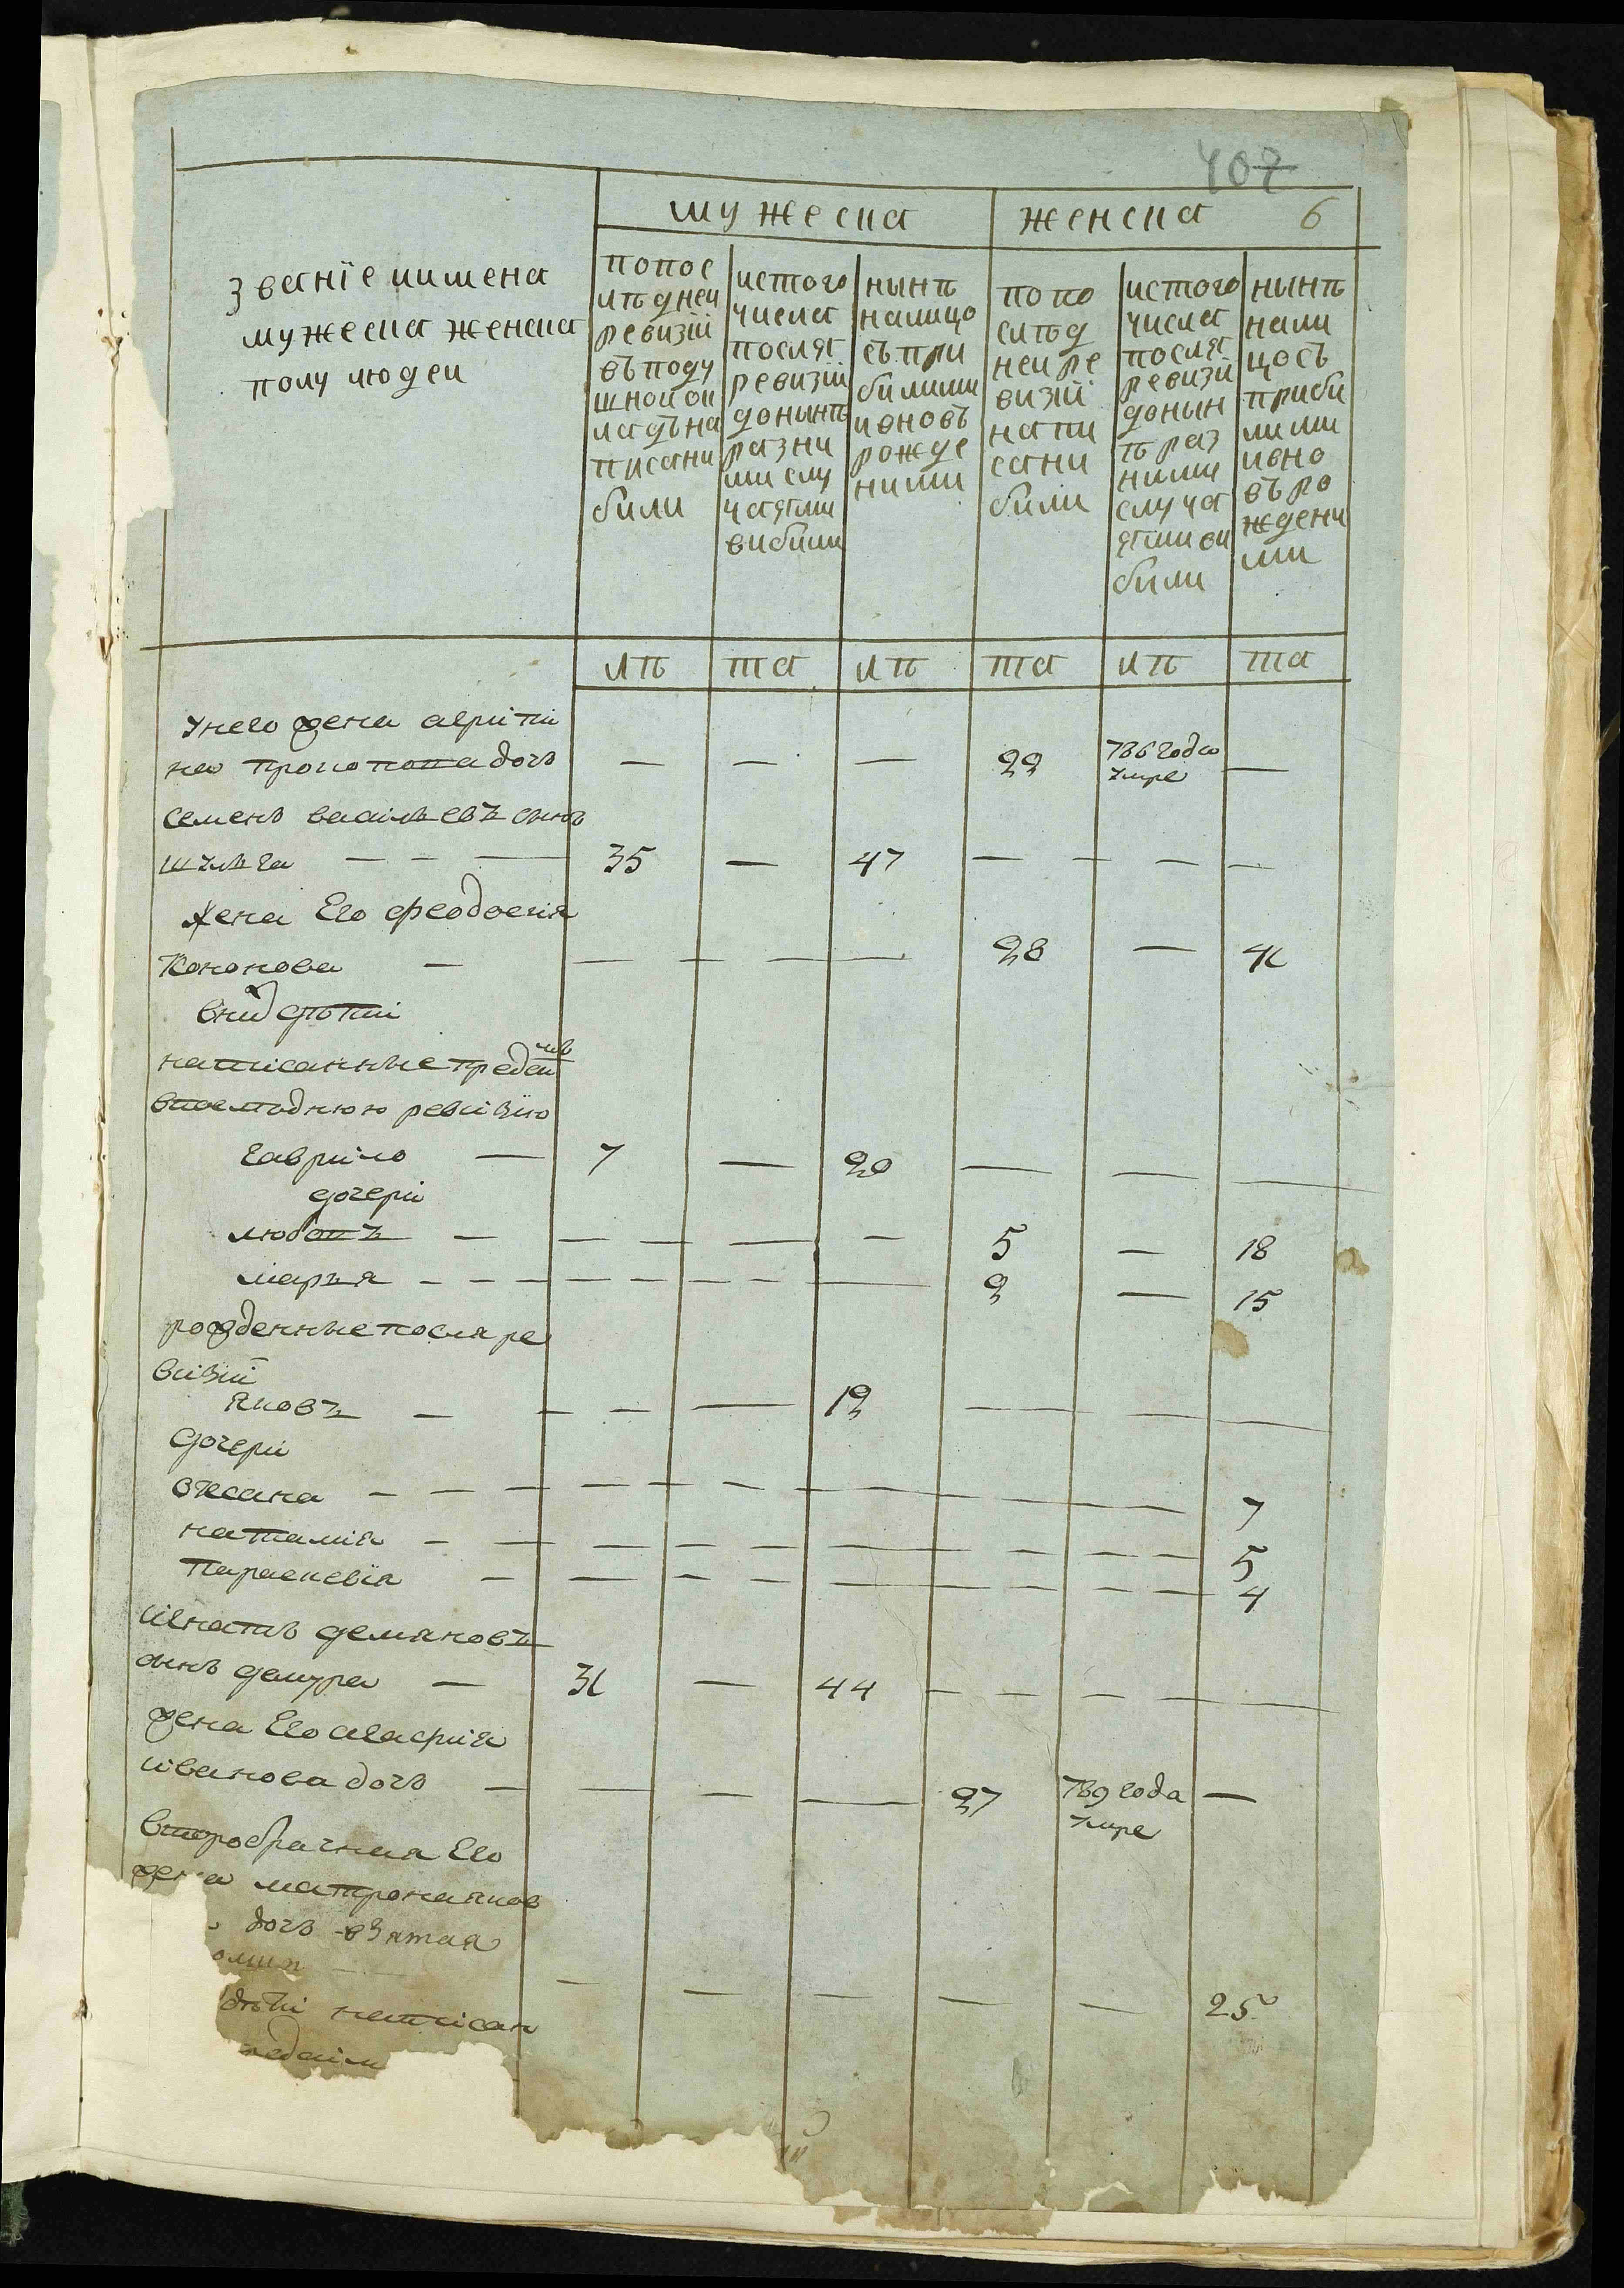 407
мужеска женска 6
званїе иимена
мужеска женска
полу людеи
попос
лѣднеи
ревизіи
въподу
шнои ок
ладъ на
писани
били
истого
числа
послѧ
ревизіи
донынѣ
разни
ми слу
чаѧми
вибили
нынѣ
налицо
съ при
билими
ивновъ
рожде
ними
попо
слѣд
неи ре
визіи
напи
сани
били
истого
числа
послѧ
ревизіи
донын
ѣ раз
ними
случа
ѧми ви
били
нынѣ
нали
цосъ
приби
лими
ивно
въ ро
ждени
ми
лѣ та лѣ та лѣ та
Унего жена агрипи
на прокопова дочь — — — 22 786 года умре —
семенъ васильевъ сынъ
шульга — — — 35 — 47 — — — —
жена Его феодосия
Кононова — — — — — 28 — 41
вних дѣти
написанные предсим
впоследнюю ревизїю
гаврило — 7 — 20 — — —
дочери
любовъ — — — — — 5 — 18
марья — — — — — — — — 2 — 15
рожденные после ре
визїи
яковъ — — — — 12 — — —
дочери
оксана — — — — — — — — — — 7
наталия — — — — — — — — — — 5
параскевїя — — — — — — — — — 4
игнатъ демяновъ
сынъ демура — 31 — 44 — — — — —
жена Его агафия
иванова дочь — — — — 27 789 года умре —
второбрачная Его
жена матрона яков
дочь взятая
— — — — — — 25
дѣти написан